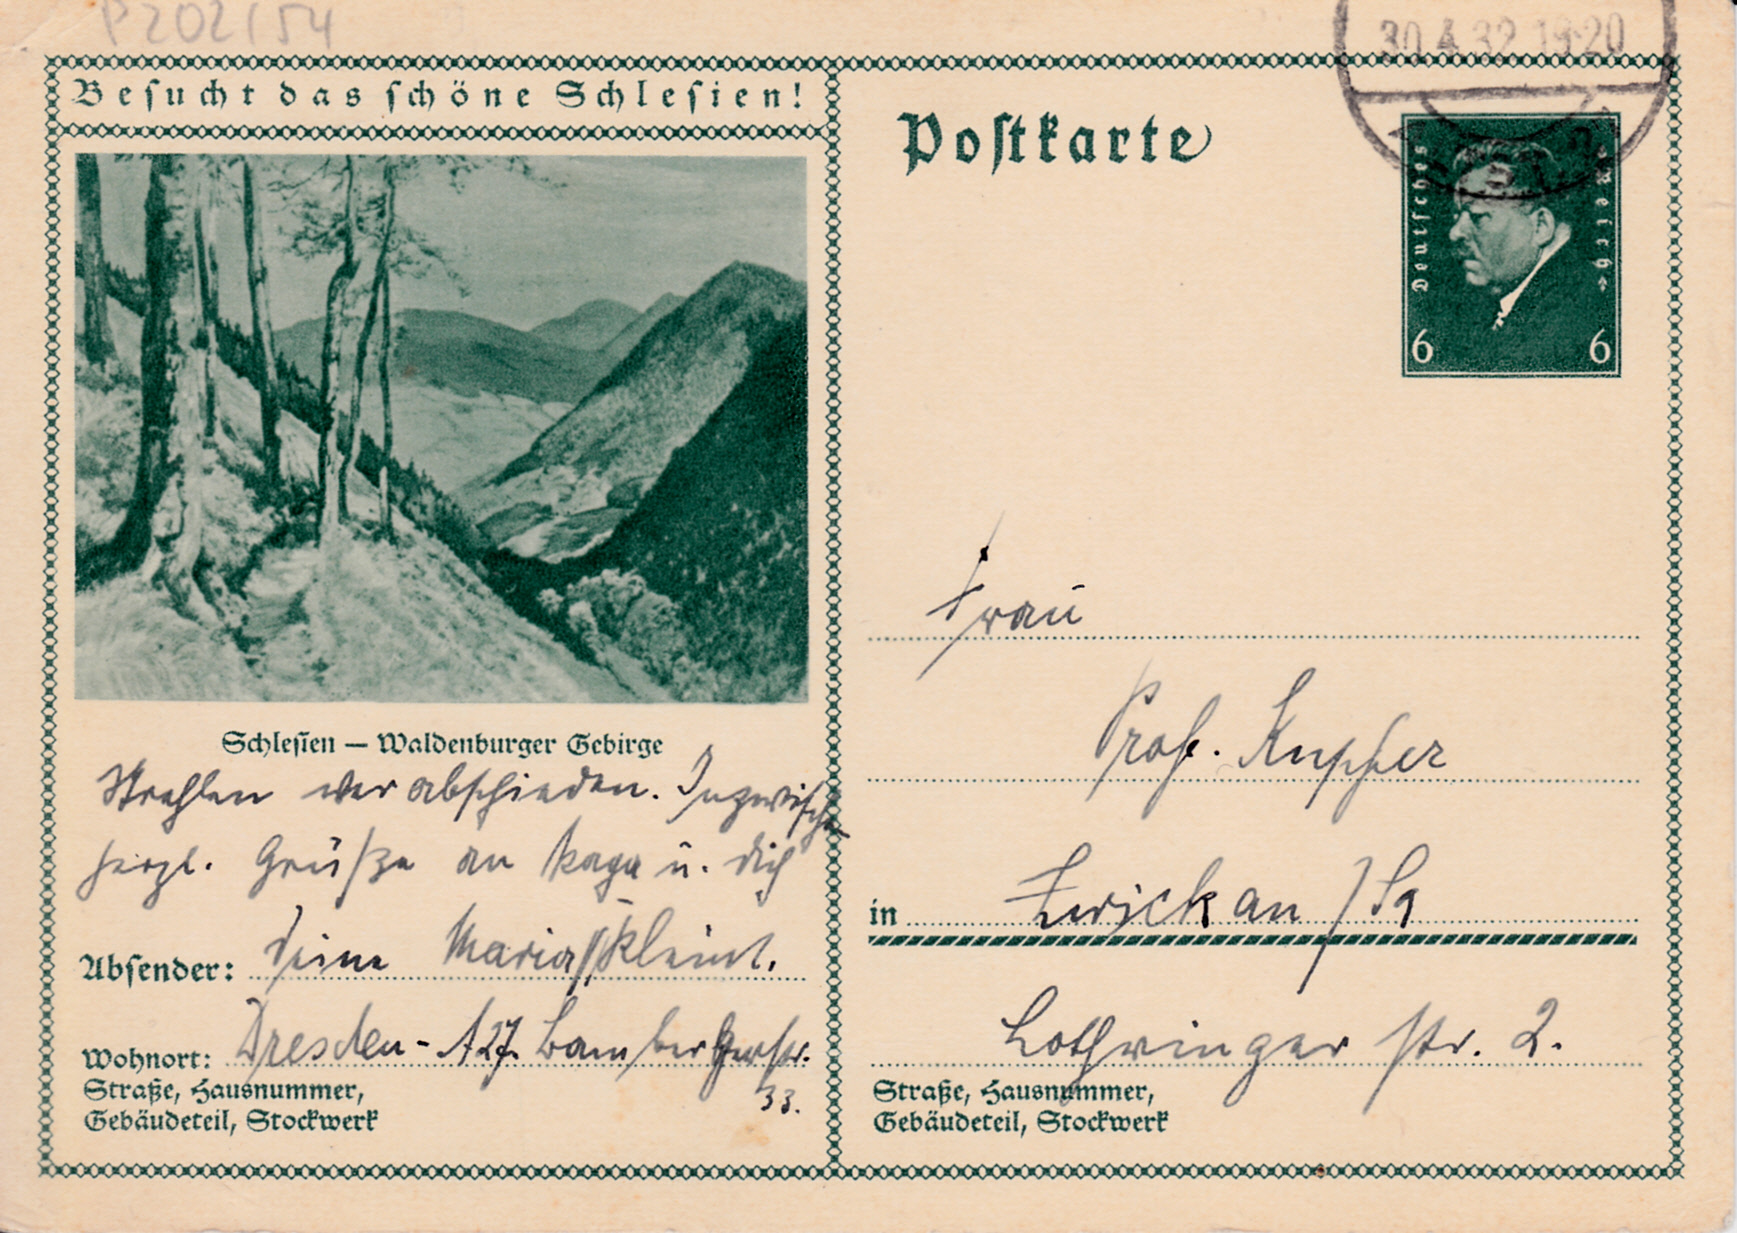 P 202 / 54
Besucht das schöne Schlesien!
Schlesien — Waldenburger Gebirge
Strahlen
herzl. Grüße an u. Dich
Absender: Deine Maria
Wohnort: Dresden-A 27. Bambergerstr.
33.
Straße, Hausnummer,
Gebäudeteil, Stockwerk
30.4.32 19-20
Postkarte
Deutsches Reich
6 6
Frau
Prof. Kupfer
in Zwickau / Sa
Lothringer Str. 2.
Straße, Hausnummer,
Gebäudeteil, Stockwerk